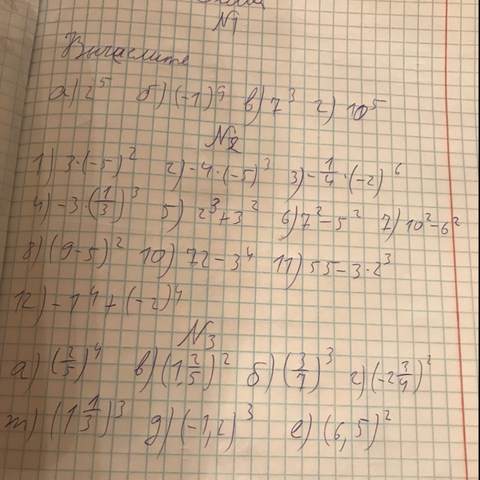 №1
Вычислите
а) 2^5 б) (-1)^9 в) 7^3 г) 10^5
№2
1) 3·(-5)^2 2) -4·(-5)^3 3) -1/4·(-2)^6
4) -3·(1/3)^3 5) 2^3+3^2 6) 7^2-5^2 7) 10^2-6^2
8) (9-5)^2 10) 72-3^4 11) 55-3·2^3
12) -1^4+(-2)^4
№3
а) (2/5)^4 в) (1 2/5)^2 б) (3/7)^3 г) (-2 3/4)^2
ж) (1 1/3)^3 д) (-1,2)^3 е) (6,5)^2